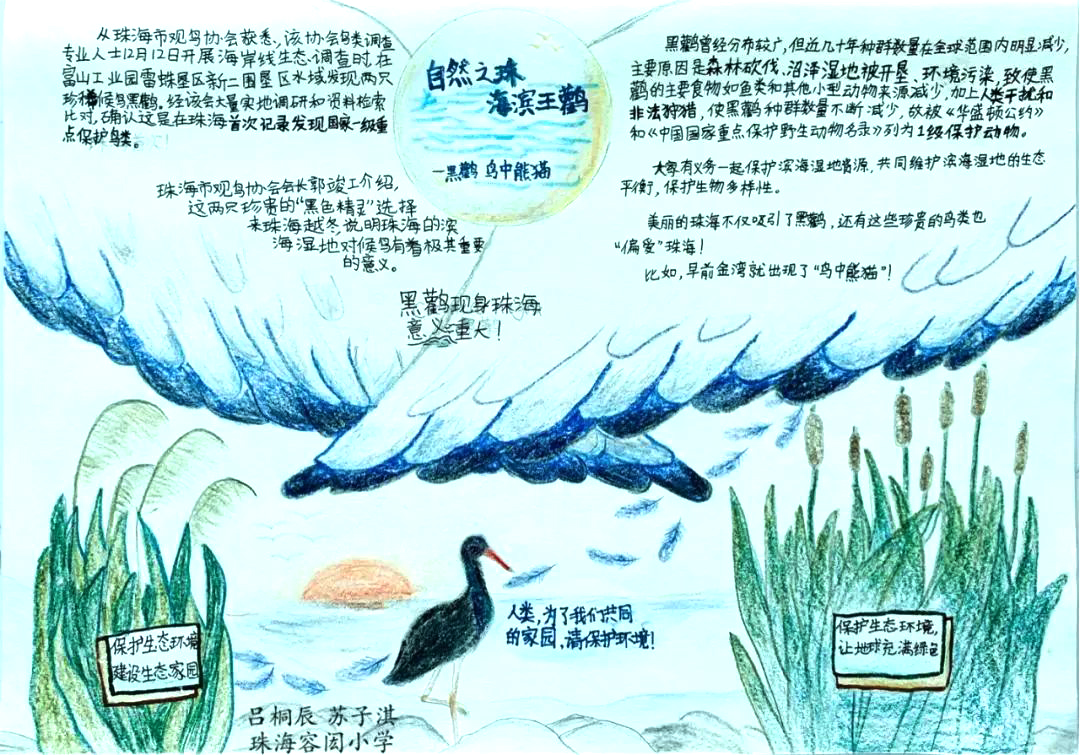 从珠海市观鸟协会获悉，该协会鸟类调查
专业人士12月12日开展海岸线生态调查时，在
富山工业园雷蛛垦区新二围垦区水域发现两只
珍稀候鸟黑鹳。经该会大量实地调研和资料检索
比对，确认这是在珠海首次记录发现国家一级重
点保护鸟类。
珠海市观鸟协会会长郭竣工介绍，
这两只珍贵的“黑色精灵”选择
来珠海越冬，说明珠海的滨
海湿地对候鸟有着极其重要
的意义。
黑鹳现身珠海
意义重大！
自然之珠
海滨王鹳
—黑鹳 鸟中熊猫
黑鹳曾经分布较广，但近几十年种群数量在全球范围内明显减少，
主要原因是森林砍伐、沼泽湿地被开垦、环境污染，致使黑
鹳的主要食物如鱼类和其他小型动物来源减少，加上人类干扰和
非法狩猎，使黑鹳种群数量不断减少，故被《华盛顿公约》
和《中国国家重点保护野生动物名录》列为1级保护动物。
大家有义务一起保护滨海湿地资源，共同维护滨海湿地的生态
平衡，保护生物多样性。
美丽的珠海不仅吸引了黑鹳，还有这些珍贵的鸟类也
“偏爱”珠海！
比如，早前金湾就出现了“鸟中熊猫”！
人类，为了我们共同
的家园，请保护环境！
保护生态环境
建设生态家园
保护生态环境，
让地球充满绿色
吕桐辰 苏子淇
珠海容闳小学